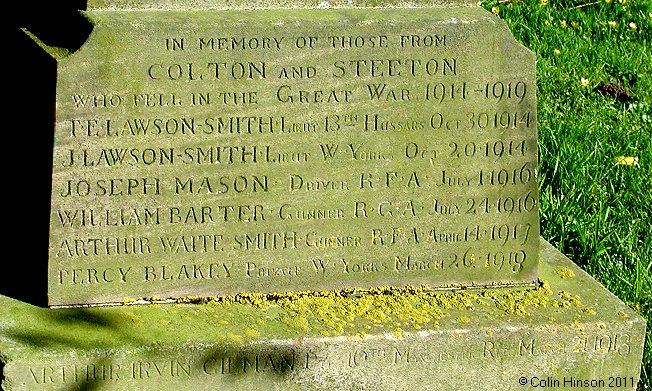 IN MEMORY OF THOSE FROM
COLTON AND STEETON
WHO FELL IN THE GREAT WAR 1914-1919
LAWSON-SMITH · LIEUT 13TH HUSSARS OCT 30 1914
J. LAWSON-SMITH · LIEUT W. YORKS OCT 20 1914
JOSEPH MASON · DRIVER R·F·A· JULY 1 1916
WILLIAM BARTER · GUNNER R·G·A· JULY 24 1916
ARTHUR WAITE SMITH · GUNNER R·F·A· APRIL 14 1917
PERCY BLAKEY PRIVATE W. YORKS MARCH 26 1919
ARTHUR IRVIN GILMAN 10TH MANCHESTER MARCH
© Colin Hinson 2011